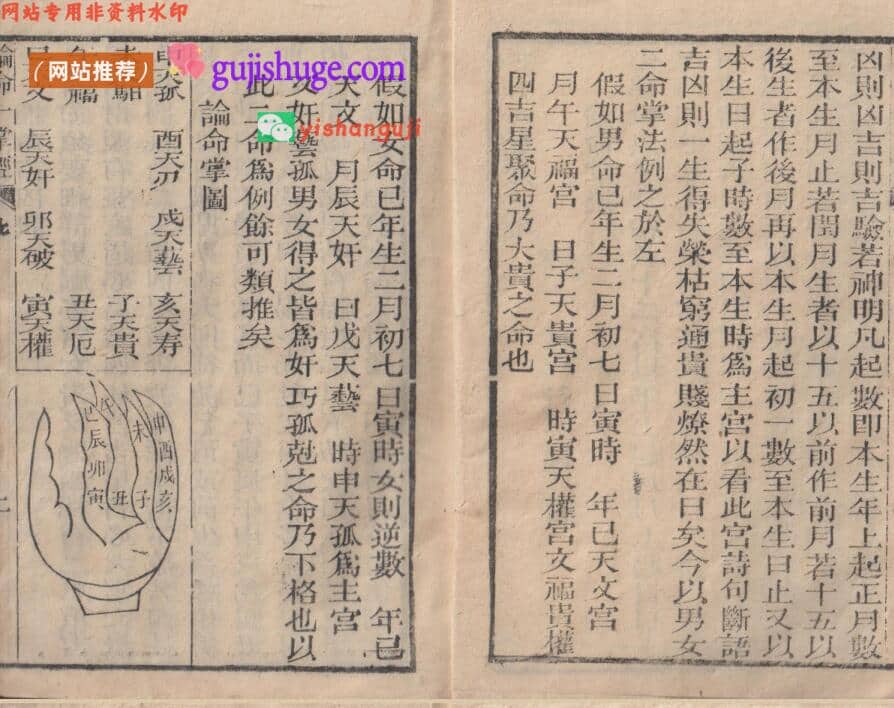 网站专用非资料水印
凶則凶吉則吉驗若神明凡起數卽本生年上起正月數
至本生月止若閏月生者以十五以前作前月若十五以
後生者作後月再以本生月起初一數至本生日止又以
本生日起子時數至本生時爲主宮以看此宮詩句斷語
吉凶則一生得失榮枯窮通貴賤燎然在目矣今以男女
二命掌法例之於左
假如男命巳年生二月初七日寅時 年巳天文宮
月午天福宮 日子天貴宮 時寅天權宮文福貴權
四吉星聚命乃大貴之命也
假如女命巳年生二月初七日寅時女則逆數 年巳
天文 月辰天奸 日戌天藝 時申天孤爲主宮
文奸藝孤男女得之皆爲奸巧孤尅之命乃下格也以
此二命爲例餘可類推矣
論命掌圖
申天孤 酉天刃 戌天藝 亥天寿
子天貴
福 丑天厄
辰天奸 卯天破 寅天權
申酉戌亥
未子
午丑
巳辰卯寅
論命一掌經
(网站推荐)
gujishuge.com
yishanguji